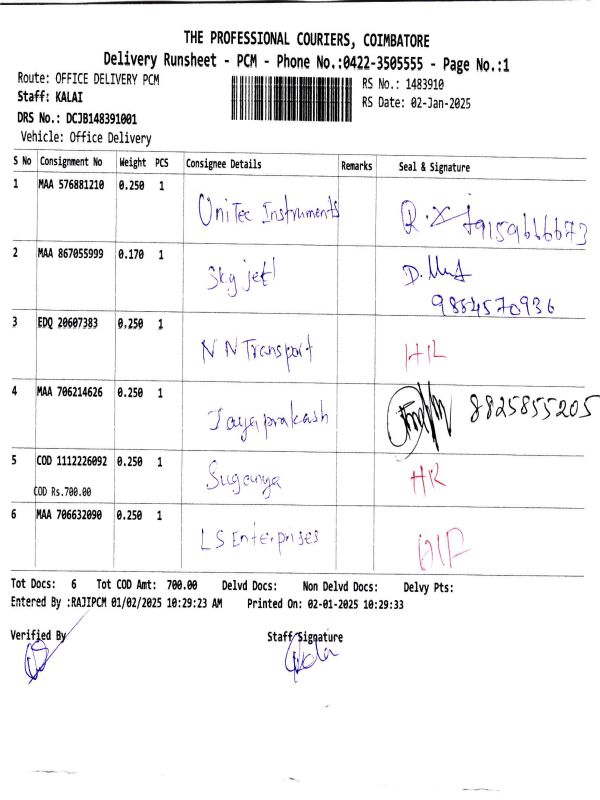 THE PROFESSIONAL COURIERS, COIMBATORE
Delivery Runsheet - PCM - Phone No.:0422-3505555 - Page No.:1
Route: OFFICE DELIVERY PCM
RS No.: 1483910
Staff: KALAI
RS Date: 02-Jan-2025
DRS No.: DCJB148391001
Vehicle: Office Delivery
S No Consignment No Weight PCS Consignee Details Remarks Seal & Signature
1 MAA 576881210 0.250 1 UniTec Instruments
2 MAA 867055999 0.170 1 Sky jet
9884570936
3 EDQ 20607383 0.250 1 N N Transport
4 MAA 706214626 0.250 1 Jayaprakash 8825855205
5 COD 1112226092 0.250 1 Suganya
COD Rs.700.00
6 MAA 706632090 0.250 1 LS Enterprises
Tot Docs: 6 Tot COD Amt: 700.00 Delvd Docs: Non Delvd Docs: Delvy Pts:
Entered By :RAJIPCM 01/02/2025 10:29:23 AM Printed On: 02-01-2025 10:29:33
Verified By Staff Signature